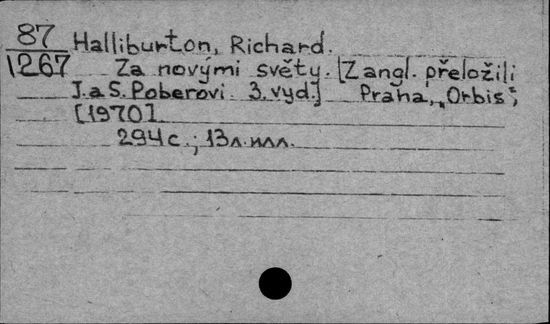 87 Halliburton, Richard.
1267 Za novými světy. [Z angl. přeložili
J. a S. Poberovi. 3. vyd.] Praha, „Orbis“,
[1970].
294 с.; 13 л. илл.